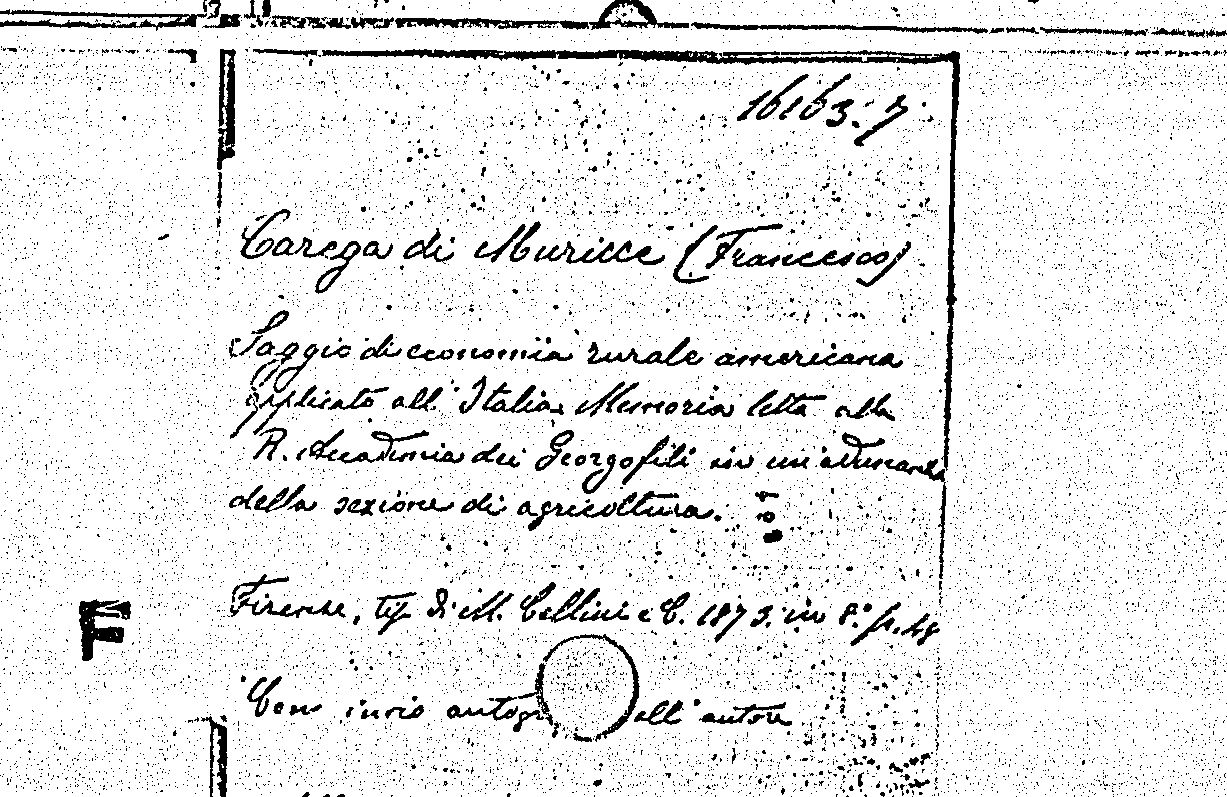 16163.7
Carega di Muricce (Francesco)
Saggio di economia rurale americana
applicato all' Italia. Memoria letta alla
R. Accademia dei Georgofili in un'adunanza
della sezione di agricoltura.
F
Firenze, tip. di M. Cellini e C. 1873. in 8.° p. 48
Con invio autog all' autore